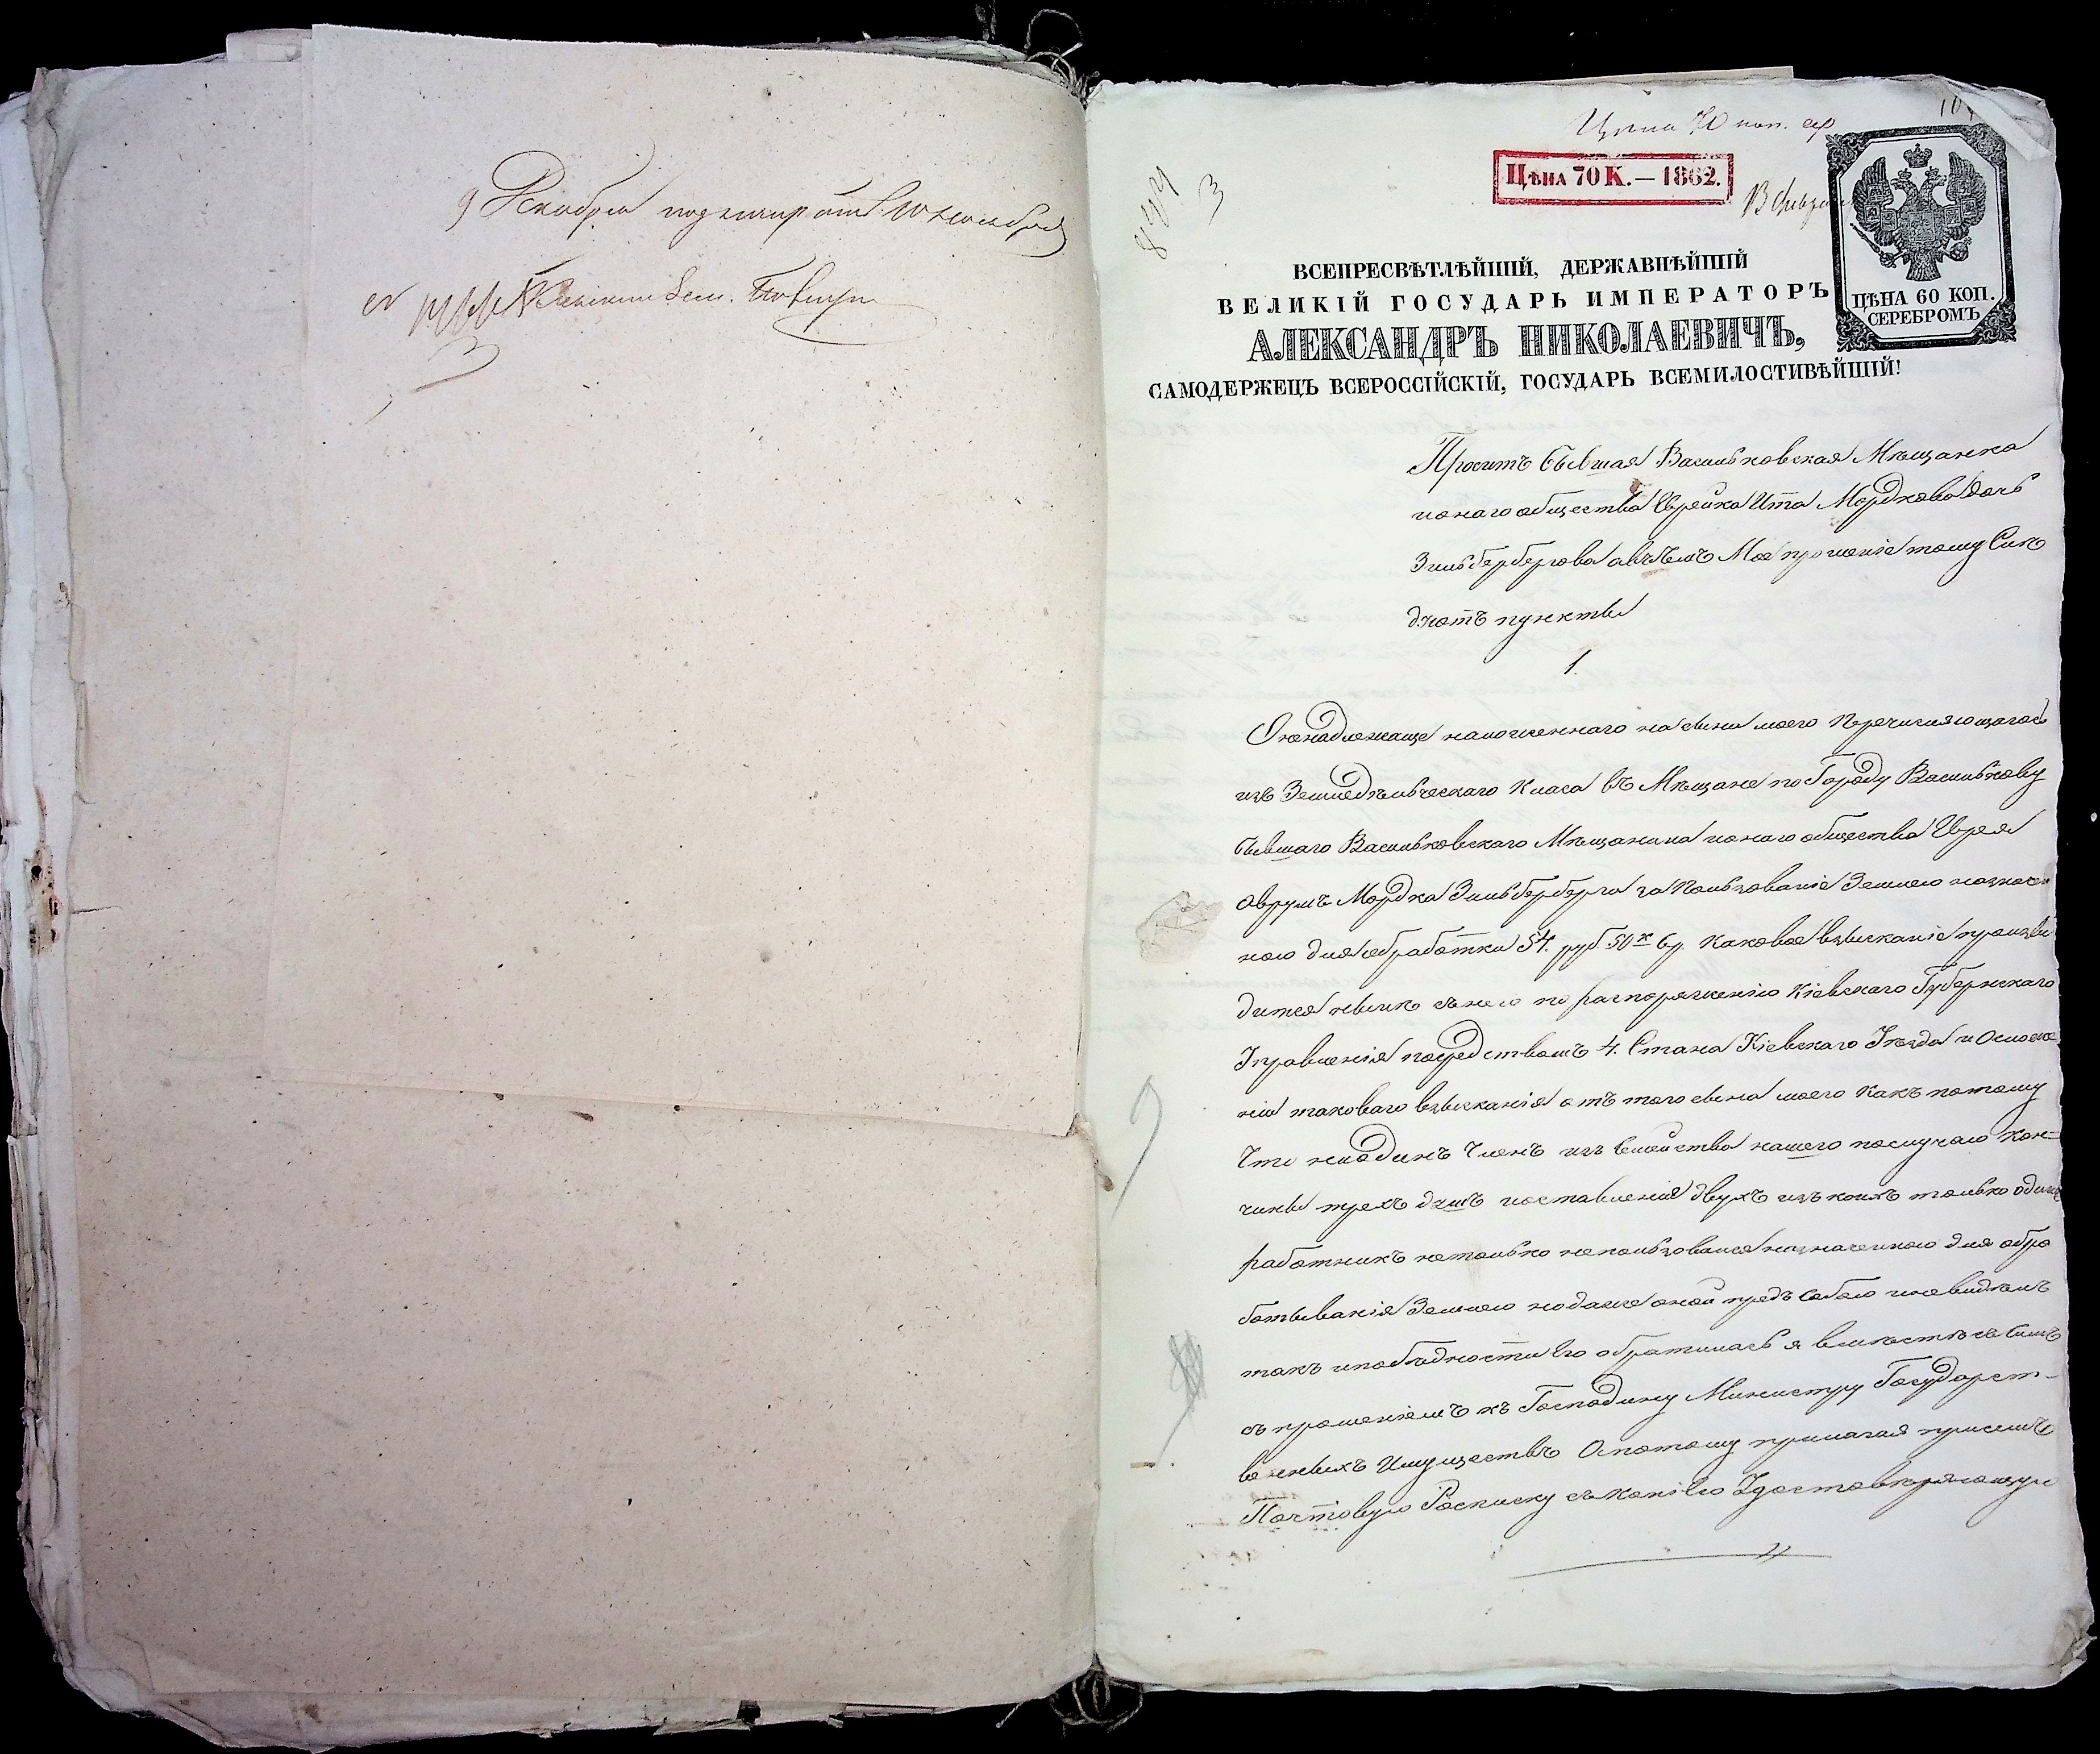 9 Декабря
Цѣна 70 коп. сер
Цѣна 70 К. — 1862.
ЦѢНА 60 КОП.
СЕРЕБРОМЪ
ВСЕПРЕСВѢТЛѢЙШІЙ, ДЕРЖАВНѢЙШІЙ
ВЕЛИКІЙ ГОСУДАРЬ ИМПЕРАТОРЪ
АЛЕКСАНДРЪ НИКОЛАЕВИЧЪ,
САМОДЕРЖЕЦЪ ВСЕРОССІЙСКІЙ, ГОСУДАРЬ ВСЕМИЛОСТИВѢЙШІЙ!
Проситъ бывшая Васильковская Мѣщанка
иснаго общества Еврейка Ита Мордкова дочь
Зильбербергова а въ чемъ Мое прошеніе тому слѣ
дуютъ пункты
1.
О ненадлежаще наложеннаго на сына моего перечисляющагось
изъ Земледѣльческаго класа въ Мѣщане по Городу Василькову
бывшаго Васильковскаго Мѣщанина иснаго общества Еврея
Аврумъ Мордка Зильберберга за пользованіе Землею назначен
ною для обработки 54. руб. 50 к каковое взысканіе произво
дится нынѣ съ него по распоряженію Кіевскаго Губернскаго
Правленія посредствомъ 4. Стана Кіевскаго Уѣзда и о сложе
ніи таковаго взысканія отъ того сына моего какъ потому
Что ниодинъ Членъ изъ Семейства нашего послучаю кон-
чины трехъ душъ и оставленія двухъ изъ коихъ только одинъ
работникъ нетолько непользовался назначенною для обра
батыванія Землею но даже оной предъ собою и невидѣлъ
такъ и по бѣдности Его обратилась я вмѣстѣ съ симъ
съ прошеніемъ къ Господину Министру Государст-
венныхъ Имуществъ А потому прилагая при семъ
Почтовую Росписку съ копіею Удостовѣряющую